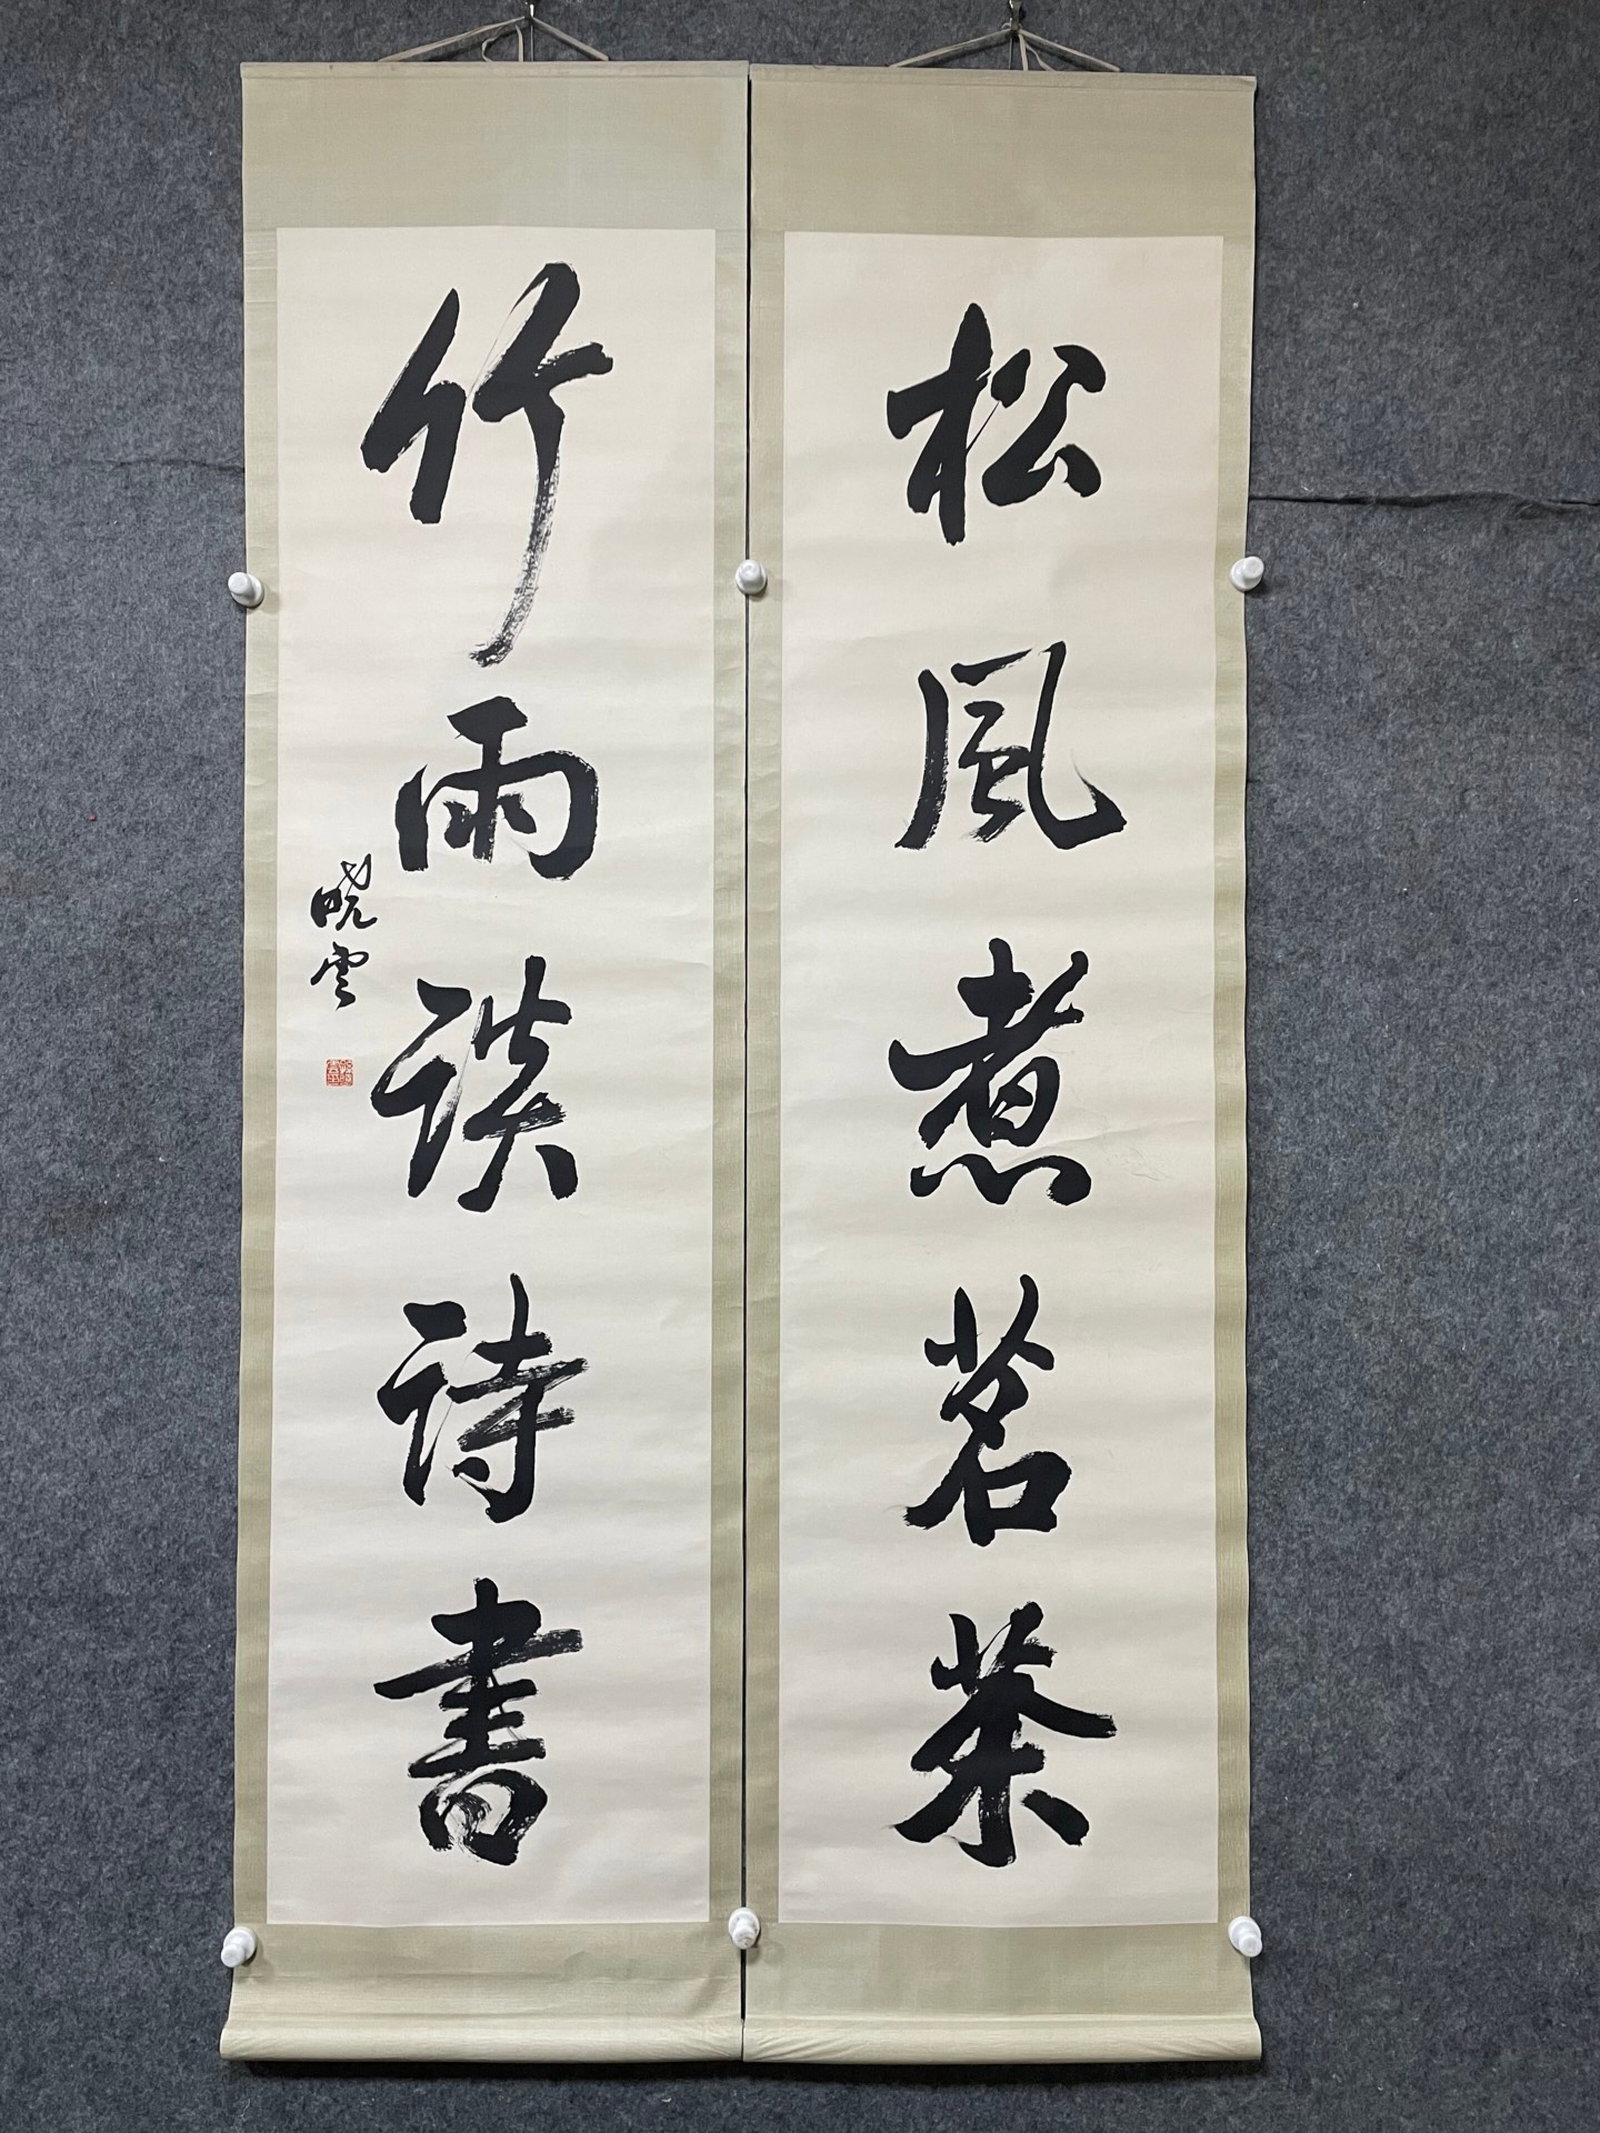 松風煮茗茶
竹雨談詩書
晓雲